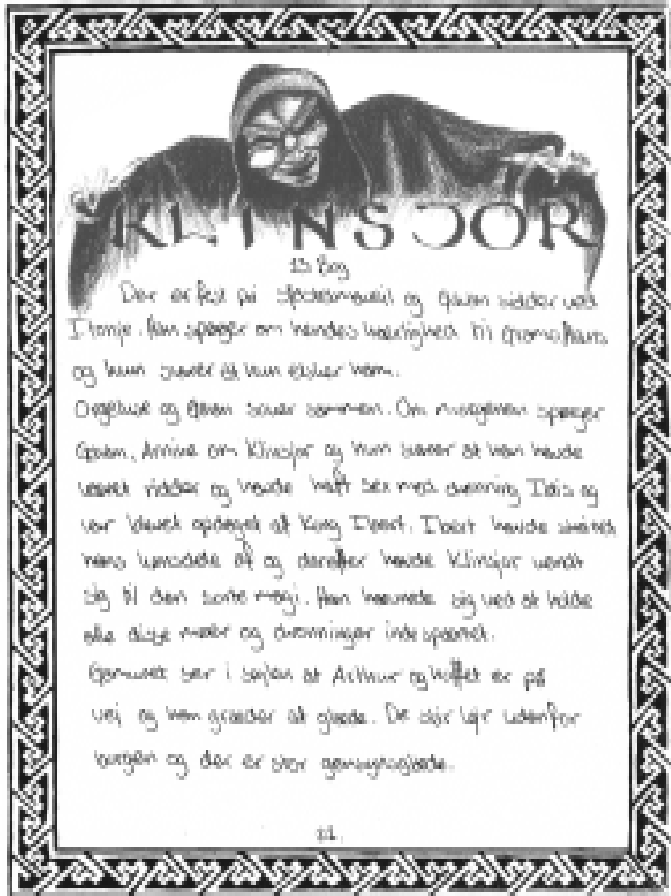 KLINSJOR
13 Bog
Der er fest på og Gawan sidder ved
Itonje. Han spørger om hendes kærlighed til Gramoflans
og hun svarer at hun elsker ham.
Orgeluse og Gawan sover sammen. Om morgenen spørger
Gawan, Arnive om Klinsjor og hun svarer at han havde
været ridder og havde haft sex med dronning Iblis og
var blevet opdaget af King Ibert. Ibert havde skåret
hans kønsdele af og derefter havde Klinsjor vendt
sig til den sorte magi. Han hævnede sig ved at holde
alle disse møer og dronninger indespærret.
ser i søjlen at Arthur og hoffet er på
vej og han græder af glæde. De slår lejr udenfor
borgen og der er stor gensynsglæde.